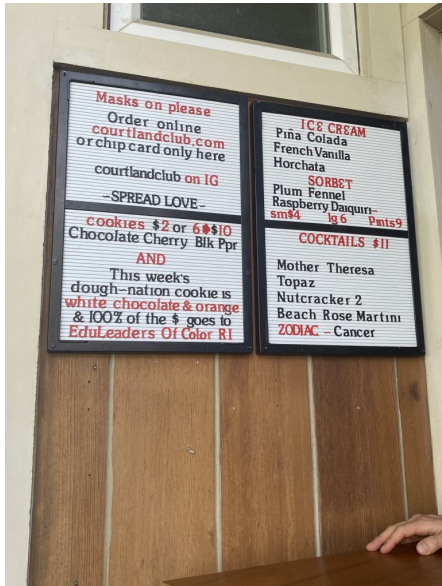 Masks on please
Order online
courtlandclub.com
or chip card only here
courtlandclub on IG
-SPREAD LOVE-
cookies $2 or 6 $10
Chocolate Cherry Blk Ppr
AND
This week's
dough-nation cookie is
white chocolate & orange
& 100% of the $ goes to
EduLeaders Of Color RI
ICE CREAM
Piña Colada
French Vanilla
Horchata
SORBET
Plum Fennel
Raspberry Daiquiri-
sm$4 lg 6 Pints9
COCKTAILS $11
Mother Theresa
Topaz
Nutcracker 2
Beach Rose Martini
ZODIAC - Cancer